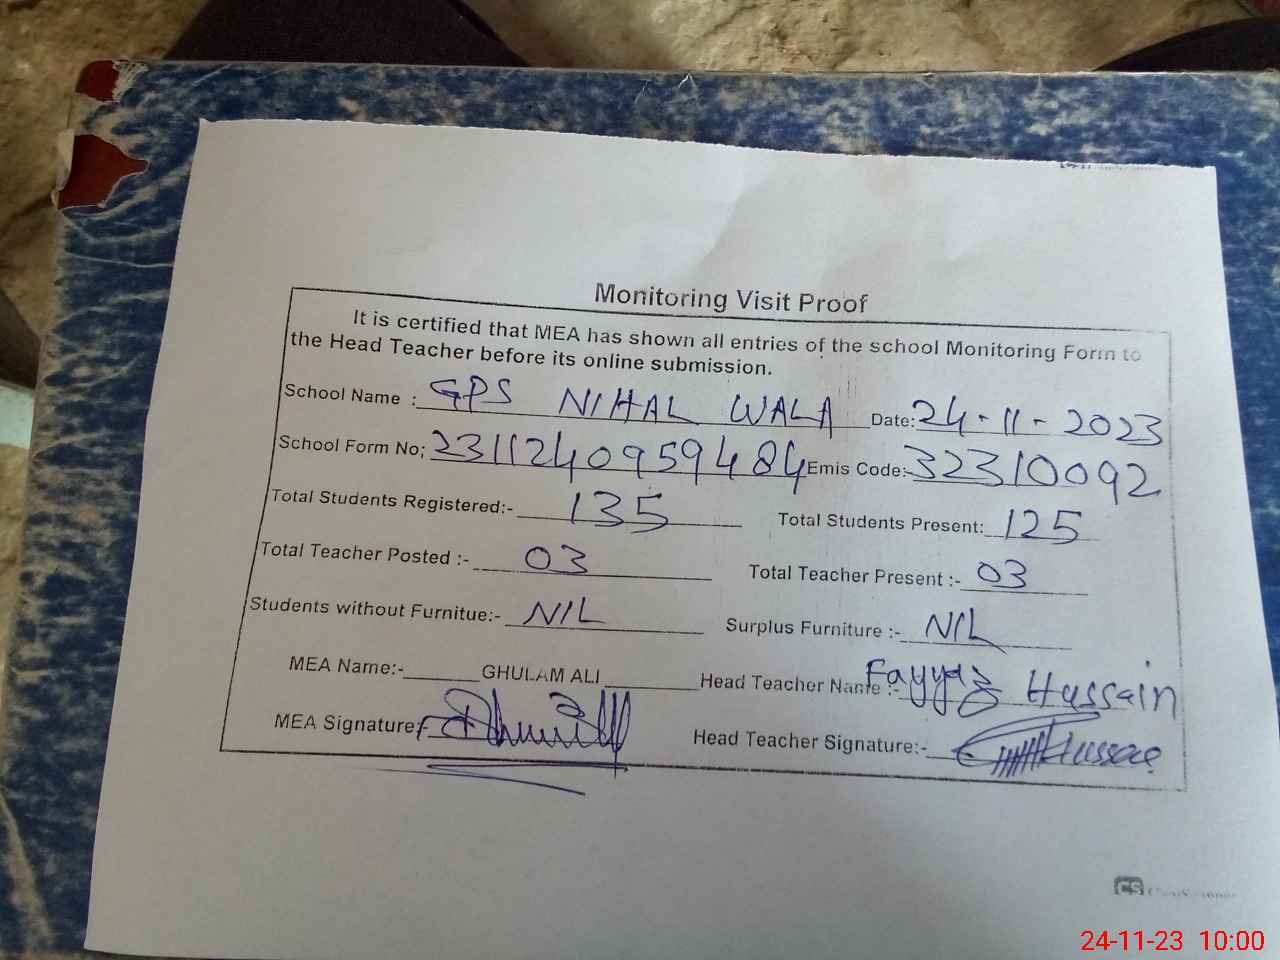 Monitoring Visit Proof
It is certified that MEA has shown all entries of the school Monitoring Form to
the Head Teacher before its online submission.
School Name : GPS NIHAL WALA Date: 24-11-2023
School Form No; 231124095948 4 Emis Code:- 32310092
Total Students Registered:- 135 Total Students Present: 125
Total Teacher Posted :- 03 Total Teacher Present :- 03
Students without Furnitue:- NIL Surplus Furniture :- NIL
MEA Name:- GHULAM ALI Head Teacher Name :- Fayyaz Hussain
MEA Signature:- Head Teacher Signature:-
CS CamScanner
24-11-23 10:00